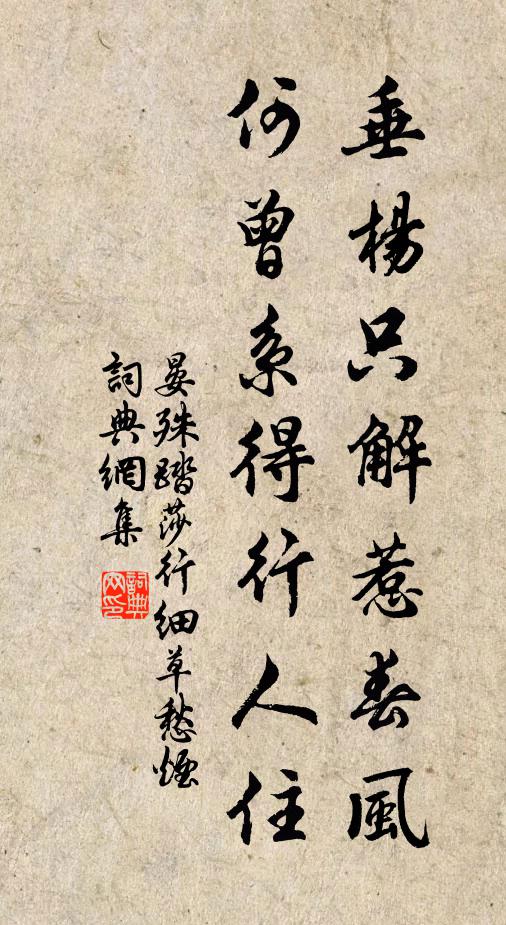 垂楊只解惹春風
何曾系得行人住
晏殊踏莎行细草愁煙
詞典網集
詞典
网印